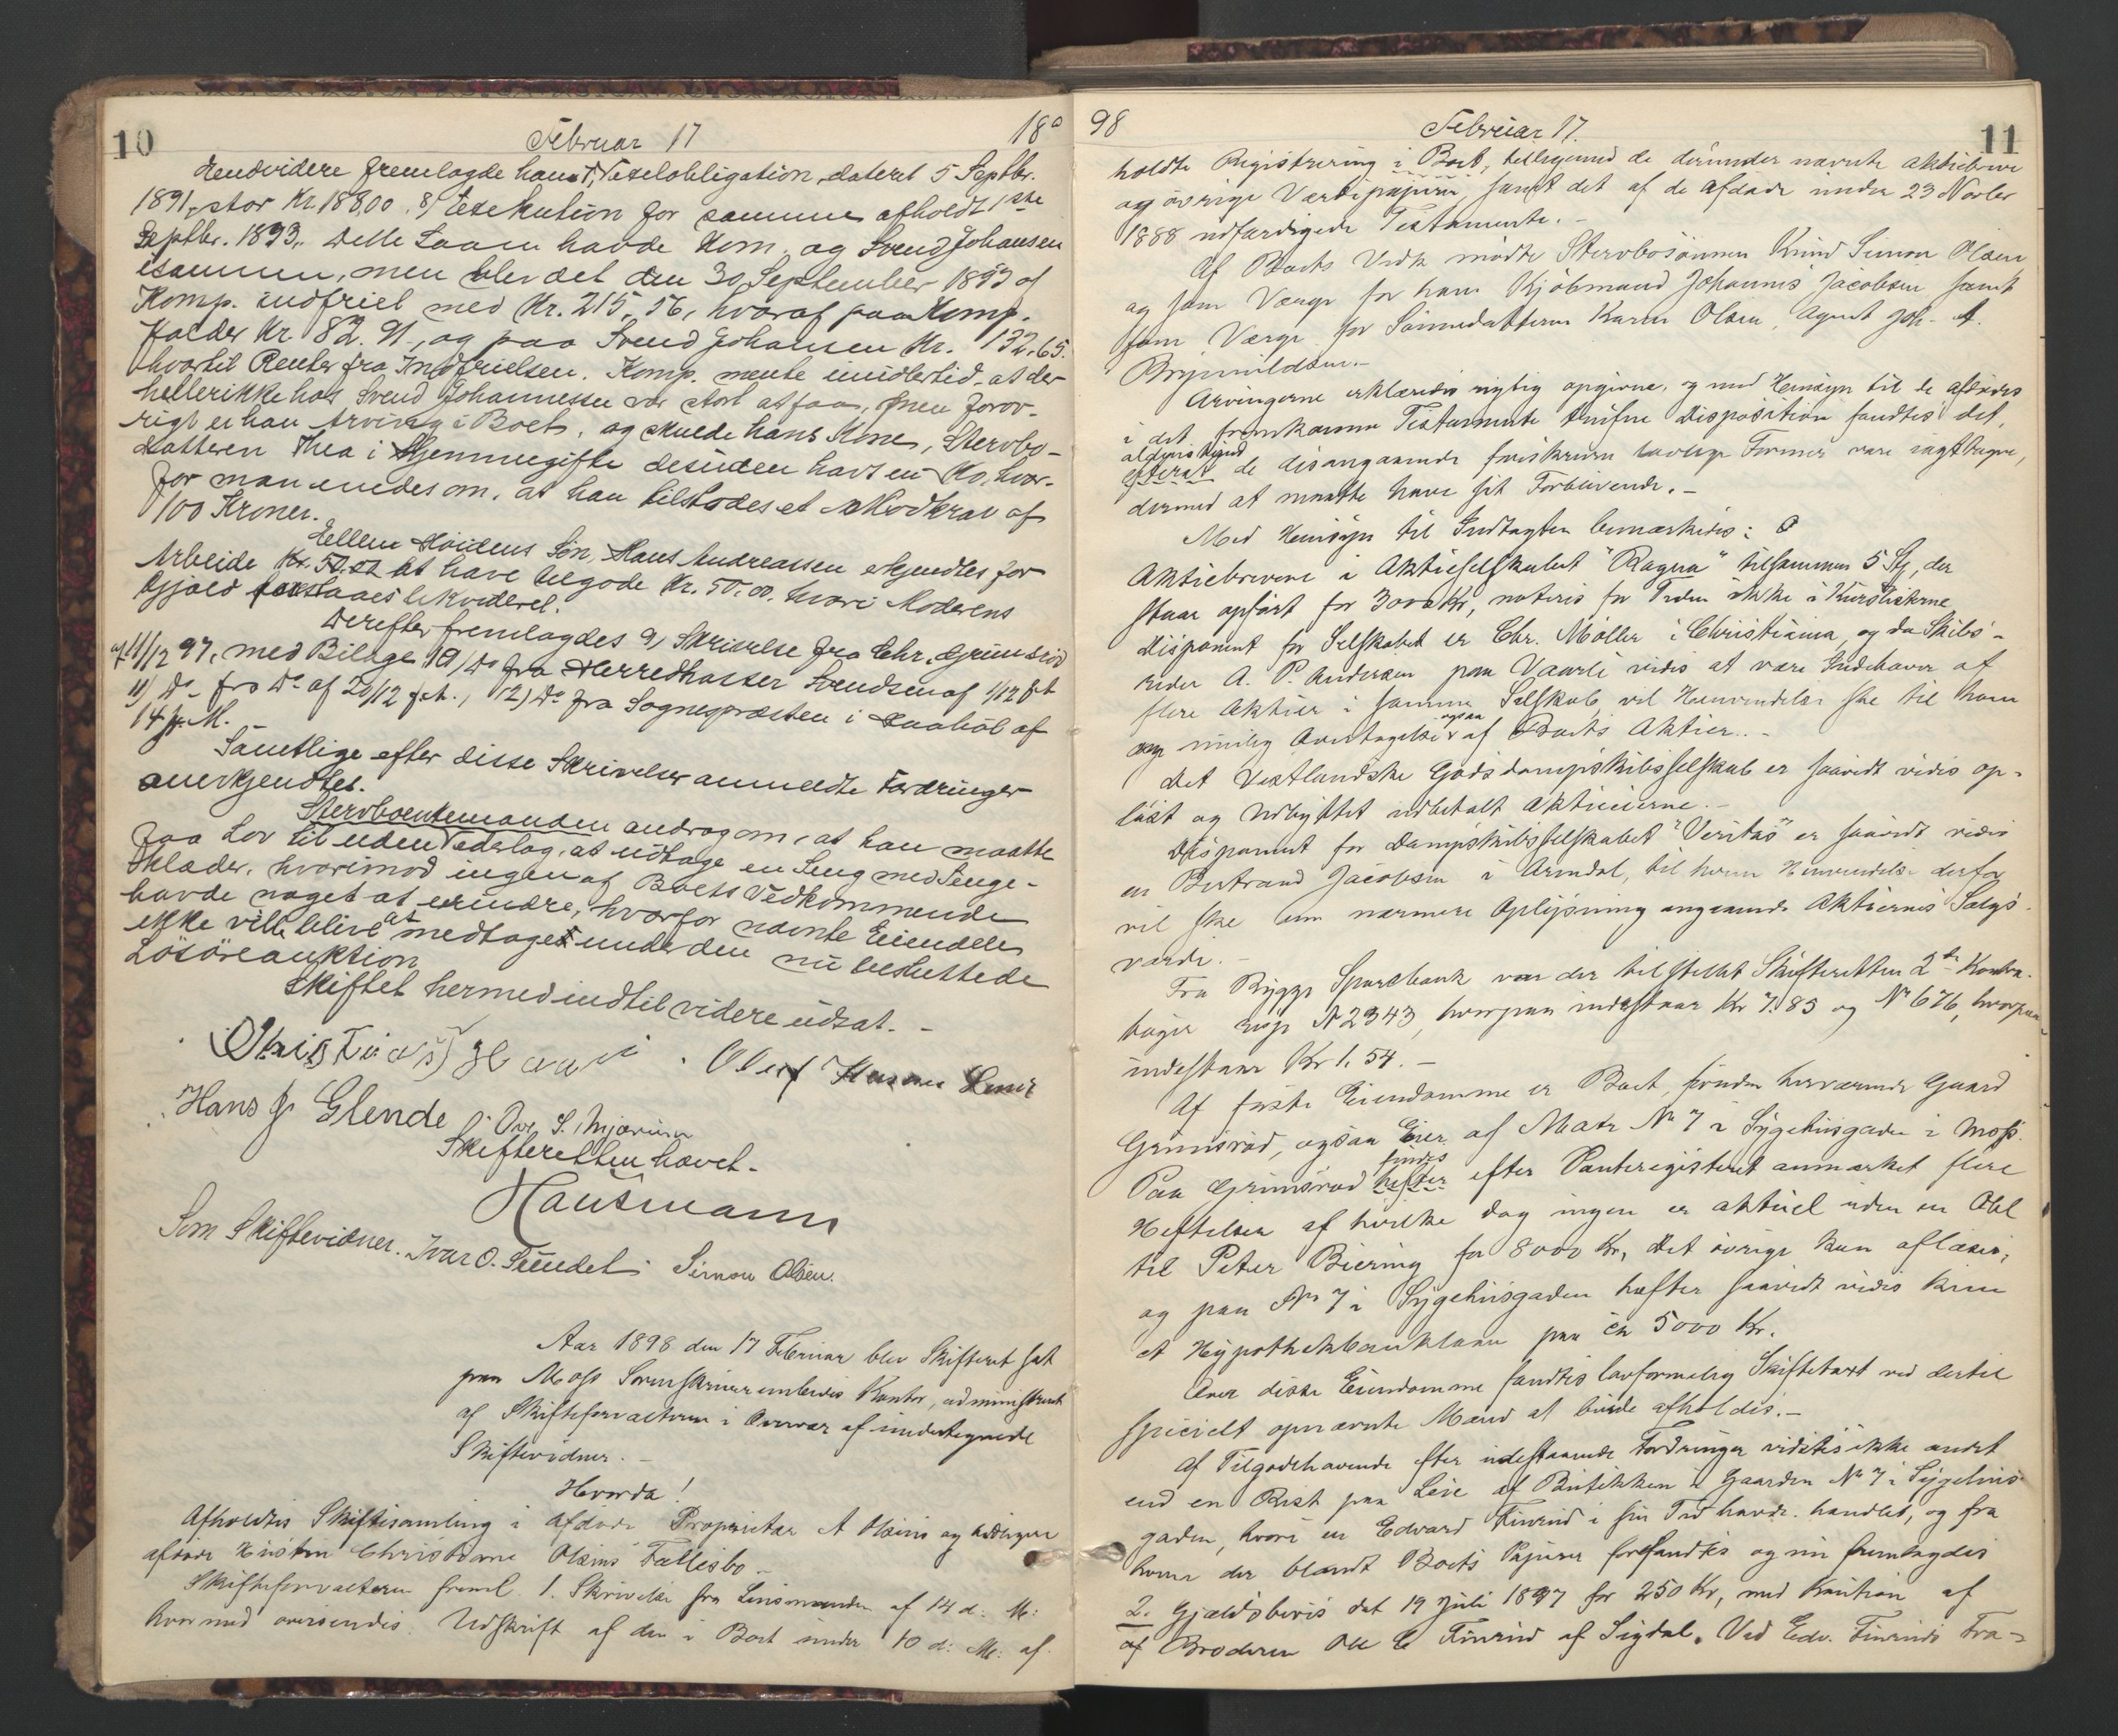 10
Februar 17
18
Hendvidere fremlagde han 7, Vexelobligation, dateret 5 Septbr.
1891, stor Kr. 188,00. 8, Exekution for samme afholdt 1ste
Septbr. 1893. Dette Laan havde Kom. og Svend Johansen
isammen, men blev det den 30 September 1893 af
Komp. indfriet med Kr. 215,56, hvoraf paa Komp.
falder Kr 82.91, og paa Svend Johansen Kr. 132,65.
hvortil Renter fra Indfrielsen. Komp. mente imidlertid at der
heller ikke hos Svend Johannessen var stort at faa, men forøv-
rigt er han Arving i Boet, og skulde hans Kone, Stervbo-
datteren Thea i Hjemmegifte desuden havt en Ko, hvor-
for man enedes om, at han tilstodes et Modkrav af
100 Kroner.
Ellen Høidens Søn, Hans Andreassen erkjendtes for
Arbeide at have tilgode Kr. 50.00. hvori Moderens
Gjæld likvideret.
Derefter fremlagdes 9, Skrivelse fra Chr. Grimsrød
af 11/12 97, med Bilage 10, Do fra Herredkasser Svendsen af 1/12 f.A
11) Do fra Do af 20/12 f.A., 12) Do fra Sognepræsten i Saabøl af
14 f. M. -
Samtlige efter disse Skrivelser anmeldte Fordringer
anerkjendtes.
Stervboenkemanden androg om, at han maatte
faa Lov til uden Vederlag, at udtage en Seng med Senge-
klæder, hvorimod ingen af Boets Vedkommende
havde noget at erindre, hvorfor nævnte Eiendele
ikke ville blive at medtaget under den nu besluttede
Løsøreauktion
Skiftet hermed indtil videre udsat. -
Olaf Hansen
Hans J. Glende Ove S.
Skifteretten hævet -
Hausmann
Som Skiftevidner. Ivar O. Sundet. Simon Olsen.
Aar 1898 den 17 Februar blev Skifteret sat
paa Moss Sorenskriverembeds Kontor, administreret
af Skifteforvalteren i Overvær af undertegnede
Skiftevidner. -
Hvorda!
Afholdtes Skiftesamling i Afdøde Proprietær A Olsens og tidligere
afdøde Hustru Christiane Olsens Fællesbo -
Skifteforvalteren freml. 1. Skrivelse fra Lensmanden af 14 d. M:
hvormed oversendes Udskrift af den i Boet under 10 d: M: af
98
Februar 17.
11
holdte Registrering i Boet, tilligemed de derunder nævnte Aktiebreve
og øvrige Værdipapirer, samt det af de Afdøde under 23 Novbr
1888 udfærdigede Testamente. -
Af Boets Vedk mødte Stervbosønnen Knud Simon Olsen
og som Værge for ham Kjøbmand Johannes Jacobsen samt
som Værge for Sønnedatteren Karen Olsen, Agent Joh. A.
Brynildsen. -
Arvingerne erklæredes rigtig opgivne, og med Hensyn til de afdødes
i det fremkomne Testamente trufne Disposition fandtes det,
efterat de desangaaende foreskrevne lovlige Former vare iagttagne,
dermed at maatte have sit Forblivende. -
Med Hensyn til Indtægten bemærkedes:
Aktiebrevene i Aktieselskabet "Ragna" tilsammen 5 St, der
staar opført for 3000 Kr, noteres for Tiden ikke i Kurslisterne
Disponent for Selskabet er Chr. Møller i Christiania, og da Skibs-
reder A. P. Andersen paa Vaarli vides at være Indehaver af
flere Aktier i samme Selskab, vil Henvendelse ske til ham
om mulig Overtagelse ogsaa af Boets Aktier. -
Det Vestlandske Godsdampskibsselskab er saavidt vides op-
løst og Udbyttet udbetalt Aktieeierne. -
Disponent for Dampskibsselskabet "Veritas" er saavidt vides
en Bertrand Jacobsen i Arendal, til hvem Henvendelse derfor
vil ske om nærmere Oplysning angaaende Aktiernes Salgs-
værdi. -
Fra Rygge Sparebank var der tilstillet Skifteretten 2de Kontra-
bøger resp N 2343, hvorpaa indestaar Kr 7.83 og No 676, hvorpaa
indestaar Kr 1.54. -
Af faste Eiendomme er Boet, foruden herværende Gaard
Grimsrød, ogsaa Eier af Matr No 7 i Sygehusgaden i Moss.
Paa Grimsrød findes efter Panteregisteret anmærket flere
Heftelser af hvilke dog ingen er aktuel uden en Obl
til Peter Biering for 8000 Kr, det øvrige kan aflæses,
og paa No 7 i Sygehusgaden hæfter saavidt vides kun
et Hypothekbanklaan paa ca 5000 Kr.
Over disse Eiendomme fandtes lovformelig Skiftetaxt ved dertil
specielt opnævnte Mænd at burde afholdes. -
Af Tilgodehavende efter udestaaende Fordringer vidstes ikke andet
end en Rest paa Leie af Butikken i Gaarden No 7 i Sygehus-
gaden, hvori en Edvard Finrud i sin Tid havde handlet, og fra
hvem der blandt Boets Papirer forefandtes og nu fremlagdes
2. Gjældsbevis dat 19 Juli 1897 for 250 Kr, med Kaution af
af Broderen Ole E Finrud af Sigdal. Ved Edv. Finruds Fra-